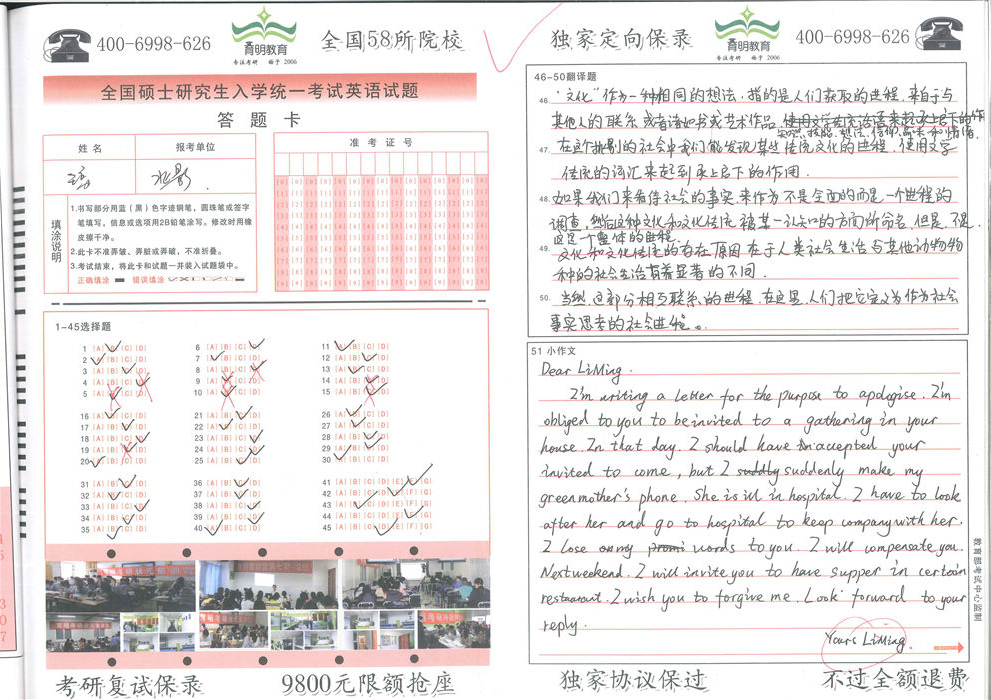 400-6998-626
育明教育
专注考研 始于 2006
全国58所院校
全国硕士研究生入学统一考试英语试题
答 题 卡
姓 名
报考单位
准 考 证 号
填涂说明
1.书写部分用蓝(黑)色字迹钢笔,圆珠笔或签字
笔填写,信息或选项用2B铅笔涂写。修改时用橡
皮擦干净。
2.此卡不准弄皱、弄脏或弄破,不准折叠。
3.考试结束,将此卡和试题一并装入试题袋中。
正确填涂 错误填涂
1-45选择题
1 [A] [B] [C] [D]
2 [A] [B] [C] [D]
3 [A] [B] [C] [D]
4 [A] [B] [C] [D]
5 [A] [B] [C] [D]
6 [A] [B] [C] [D]
7 [A] [B] [C] [D]
8 [A] [B] [C] [D]
9 [A] [B] [C] [D]
10 [A] [B] [C] [D]
11 [A] [B] [C] [D]
12 [A] [B] [C] [D]
13 [A] [B] [C] [D]
14 [A] [B] [C] [D]
15 [A] [B] [C] [D]
16 [A] [B] [C] [D]
17 [A] [B] [C] [D]
18 [A] [B] [C] [D]
19 [A] [B] [C] [D]
20 [A] [B] [C] [D]
21 [A] [B] [C] [D]
22 [A] [B] [C] [D]
23 [A] [B] [C] [D]
24 [A] [B] [C] [D]
25 [A] [B] [C] [D]
26 [A] [B] [C] [D]
27 [A] [B] [C] [D]
28 [A] [B] [C] [D]
29 [A] [B] [C] [D]
30 [A] [B] [C] [D]
31 [A] [B] [C] [D]
32 [A] [B] [C] [D]
33 [A] [B] [C] [D]
34 [A] [B] [C] [D]
35 [A] [B] [C] [D]
36 [A] [B] [C] [D]
37 [A] [B] [C] [D]
38 [A] [B] [C] [D]
39 [A] [B] [C] [D]
40 [A] [B] [C] [D]
41 [A] [B] [C] [D] [E] [F] [G]
42 [A] [B] [C] [D] [E] [F] [G]
43 [A] [B] [C] [D] [E] [F] [G]
44 [A] [B] [C] [D] [E] [F] [G]
45 [A] [B] [C] [D] [E] [F] [G]
考研复试保录
9800元限额抢座
独家定向保录
育明教育
专注考研 始于 2006
400-6998-626
46-50翻译题
46. "文化"作为一种相同的想法,指的是人们获取的进程,来自于与
其他人的联系,或者诸如书或艺术作品,使用文字
知识,技能,想法,信仰,和情绪.
47. 在这个批判的社会中我们能发现某些传统文化的进程,使用文字
传统的词汇来起到承上启下的作用.
48. 如果我们来看待社会的事实,来作为不是全面的而是一个进程的
调查,然后这种文化和文化传统被某一认知的方面所命名,但是,不是,
这是一个整体的进程
49. 文化和文化传统的存在原因在于人类社会生活与其他动物物
种的社会生活有着显著的不同.
50. 当然,这部分相互联系的进程,在这里,人们把它定义为作为社会
事实思考的社会进程。
51 小作文
Dear LiMing.
I'm writing a letter for the purpose to apologise. I'm
obliged to you to be invited to a gathering in your
house. In that day. I should have accepted your
invited to come, but I suddly suddenly make my
greenmother's phone. She is ill in hospital. I have to look
after her and go to hospital to keep company with her.
I lose my promi words to you. I will compensate you.
Next weekend. I will invite you to have supper in certain
restaurant. I wish you to forgive me. Look forward to your
reply.
Yours LiMing.
教育部考试中心监制
独家协议保过
不过全额退费